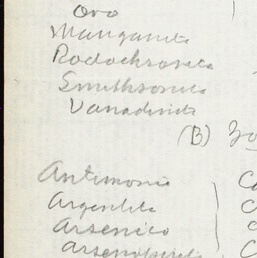 Oro
Manganite
Rodochrosite
Smithsonite
Vanadinite
(B)
Antimonio
Argentite
Arsenico
Arsenopirite